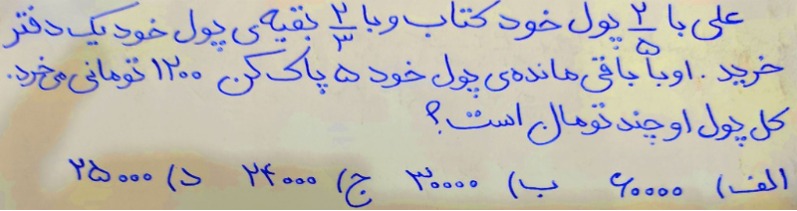 علی با ۲/۵ پول خود کتاب و با ۲/۳ بقیه‌ی پول خود یک دفتر
خرید. او با باقی مانده‌ی پول خود ۵ پاک کن ۱۲۰۰ تومانی می‌خرد.
کل پول او چند تومان است؟
الف) ۶۰۰۰۰ ب) ۳۰۰۰۰ ج) ۲۴۰۰۰ د) ۲۵۰۰۰